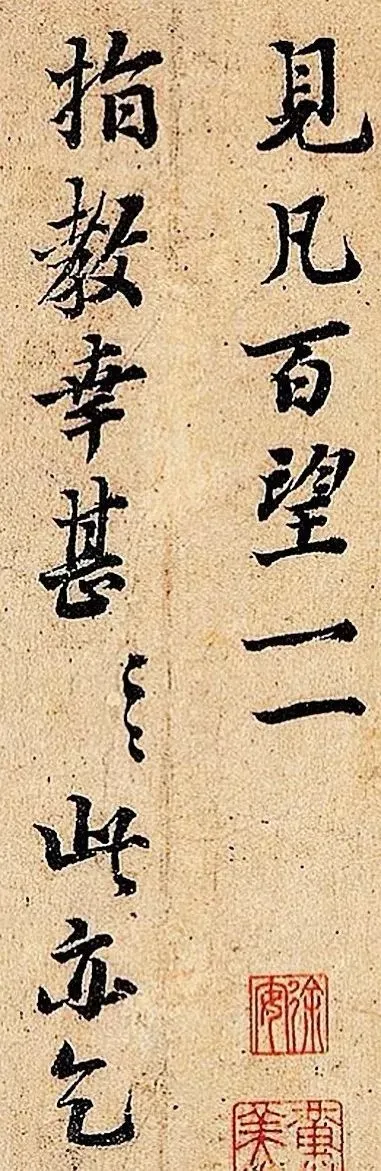 見凡百望一一
指教幸甚〻〻此亦乞